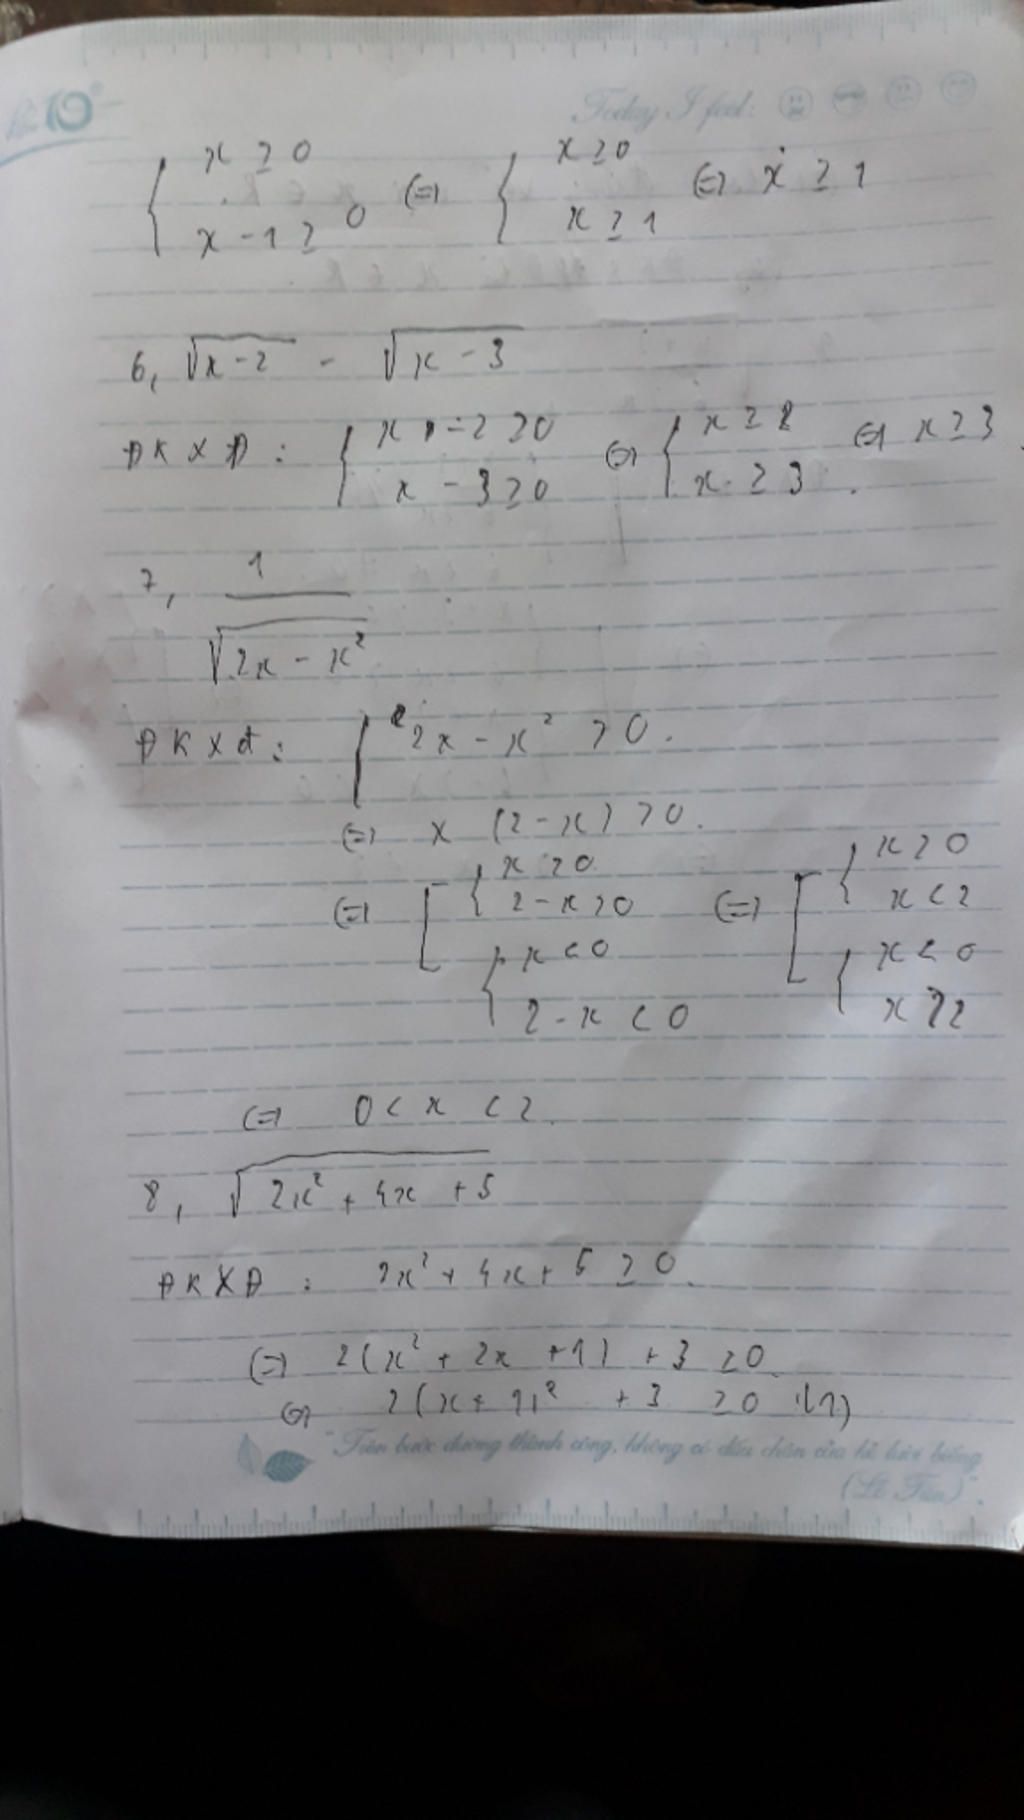 10
Today I feel:
{ x ≥ 0 (=) { x ≥ 0 (=) x ≥ 1
x - 1 ≥ 0 x ≥ 1
6, √x-2 - √x-3
ĐKXĐ: { x - 2 ≥ 0 (=) { x ≥ 2 (=) x ≥ 3
x - 3 ≥ 0 x ≥ 3.
7, 1
√2x - x²
ĐKXđ: { 2x - x² > 0.
(=) x (2-x) > 0.
(=) [ { x > 0 (=) [ { x > 0
2-x > 0 x < 2
{ x < 0 { x < 0
2-x < 0 x > 2
(=) 0 < x < 2
8, √2x² + 4x + 5
ĐKXĐ: 2x² + 4x + 5 ≥ 0.
(=) 2(x² + 2x + 1) + 3 ≥ 0
(=) 2(x+1)² + 3 ≥ 0
"Trên bước đường thành công, không có dấu chân của kẻ lười biếng
(Lỗ Tấn)".